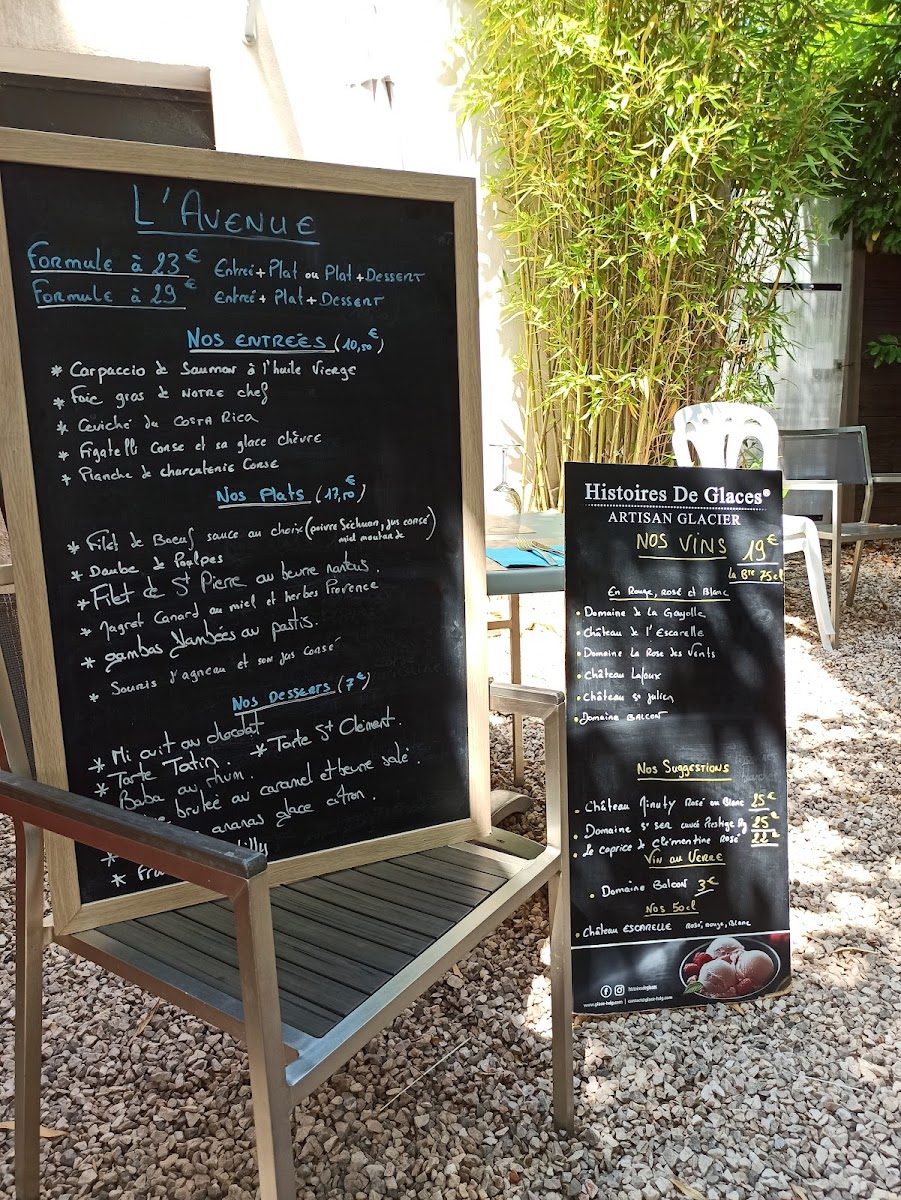 L'AVENUE
Formule à 23€ Entreé + Plat ou Plat + Dessert
Formule à 29€ Entreé + Plat + Dessert
Nos ENTRÉES (10,50€)
* Carpaccio de Saumon à l'huile Vierge
* Foie gras de NOTRE chef
* Ceviché du COSTA RICA
* Figatelli Corse et sa glace chèvre
* Planche de charcuterie Corse
Nos Plats (17,50€)
* Filet de Boeuf sauce au choix (poivre Séchuan, jus corsé
miel moutarde)
* Daube de Poulpes
* Filet de St Pierre au beurre nantais.
* Magret Canard au miel et herbes Provence
* gambas flambées au pastis.
* Souris d'agneau et son jus corsé
Nos Desserts (7€)
* Mi cuit au chocolat
* Tarte Tatin. * Tarte St Clément.
Baba au rhum.
brulée au caramel et beurre salé.
ananas glace citron.
*
Histoires De Glaces®
ARTISAN GLACIER
NOS VINS 19€
La Bte 75cl
En Rouge, rosé et Blanc
• Domaine de La Gayolle
• Château de l'Escarelle
• Domaine La Rose des Vents
• Château Lafoux
• Château St julien
• Domaine BALCON
Nos Suggestions
• Château Minuty Rosé ou Blanc 25€
• Domaine St ser cuvée Prestige 25€
• Le caprice de Clémentine Rosé 22€
Vin au Verre
• Domaine Balcon 3€
Nos 50cl
• Château ESCARELLE Rosé, rouge, Blanc
histoiredeglaces
www.glace-hdg.com | contact@glace-hdg.com